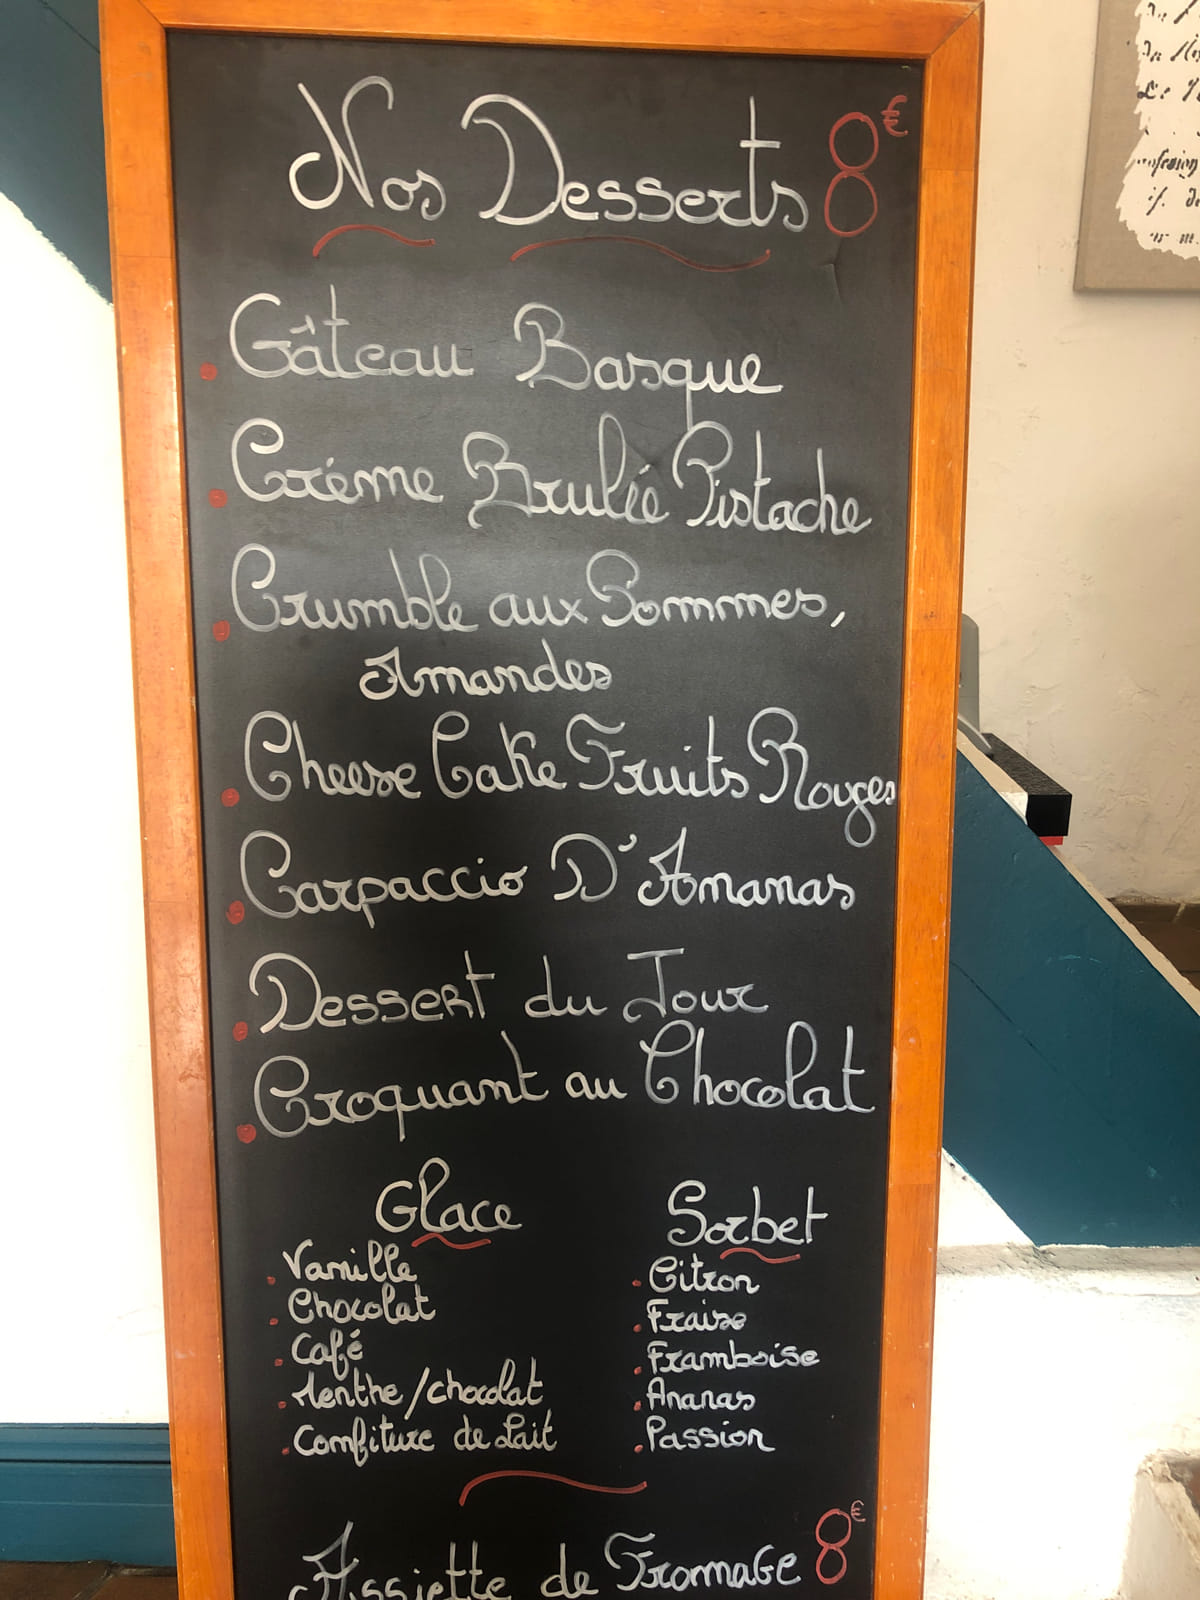 Nos Desserts 8€
Gâteau Basque
Créme Brulée Pistache
Crumble aux Pommes,
Amandes
Cheese Cake Fruits Rouges
Carpaccio D'Ananas
Dessert du Jour
Croquant au Chocolat
Glace
Vanille
Chocolat
Café
Menthe/chocolat
Confiture de Lait
Sorbet
Citron
Fraise
Framboise
Ananas
Passion
Assiette de Fromage 8€